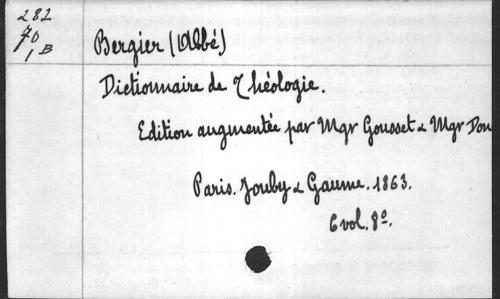 282
70
1 B
Bergier (Abbé)
Dictionnaire de Théologie.
Edition augmentée par Mgr Gousset & Mgr Don
Paris. Jouby & Gaume. 1863.
6 vol. 8º.